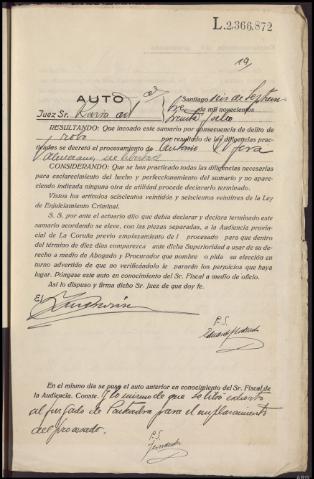 L.2.366.872
19
AUTO
Santiago seis de
de mil novecientos
Juez Sr. treinta
RESULTANDO: Que incoado este sumario por consecuencia de delito de
robo por resultado de las diligencias prac-
ticadas se decretó el procesamiento de Antonio
CONSIDERANDO: Que se han practicado todas las diligencias necesarias
para esclarecimiento del hecho y perfeccionamiento del sumario y no apare-
ciendo indicada ninguna otra de utilidad procede declararlo terminado.
Vistos los artículos seiscientos veintidós y seiscientos veintitres de la Ley
de Enjuiciamiento Criminal.
S. S. por ante el actuario dijo que debía declarar y declara terminado este
sumario acordando se eleve, con las piezas separadas, a la Audiencia provin-
cial de La Coruña previo emplazamiento del procesado para que dentro
del término de diez dias comparezca ante dicha Superioridad a usar de su dere-
cho a medio de Abogado y Procurador que nombre o pida su elección en
turno advertido de que no verificándolo le pararán los perjuicios que haya
lugar. Póngase este auto en conocimiento del Sr. Fiscal a medio de oficio.
Así lo dispuso y firma dicho Sr. Juez de que doy fe.
El
P.S.
En el mismo dia se puso el auto anterior en conocimiento del Sr. Fiscal de
la Audiencia. Conste. lo mismo de que se libró exhorto
al juzgado de para el emplazamiento
del procesado.
P.S.